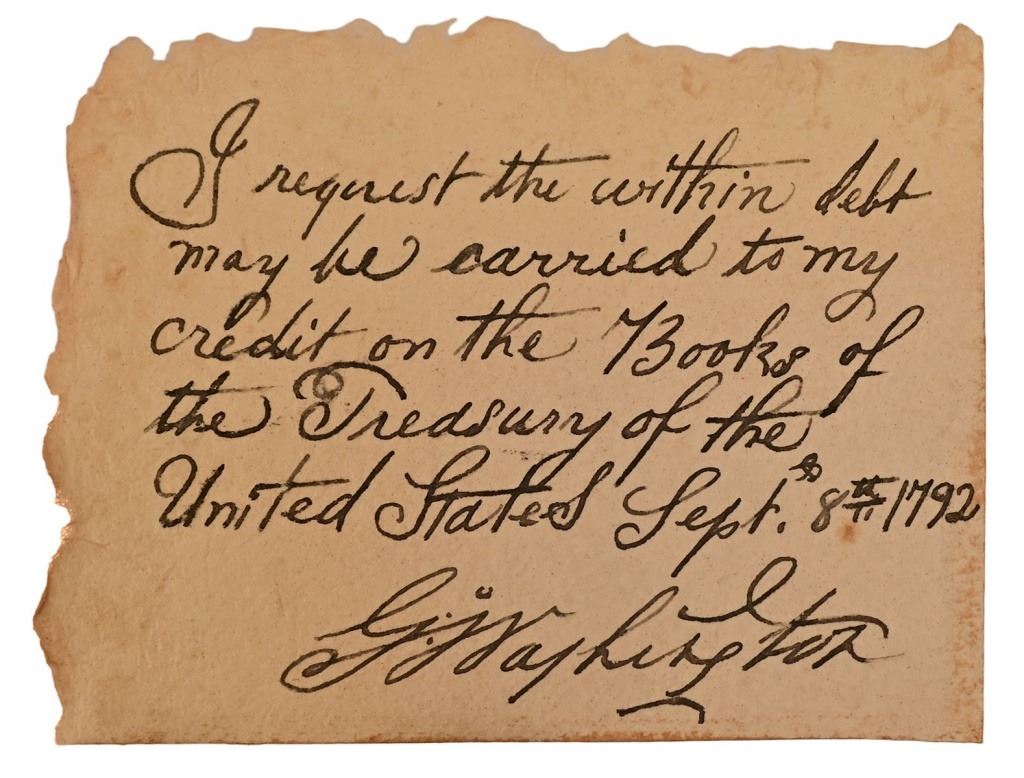 I request the within debt
may be carried to my
credit on the Books of
the Treasury of the
United States Sept. 8th 1792
G. Washington